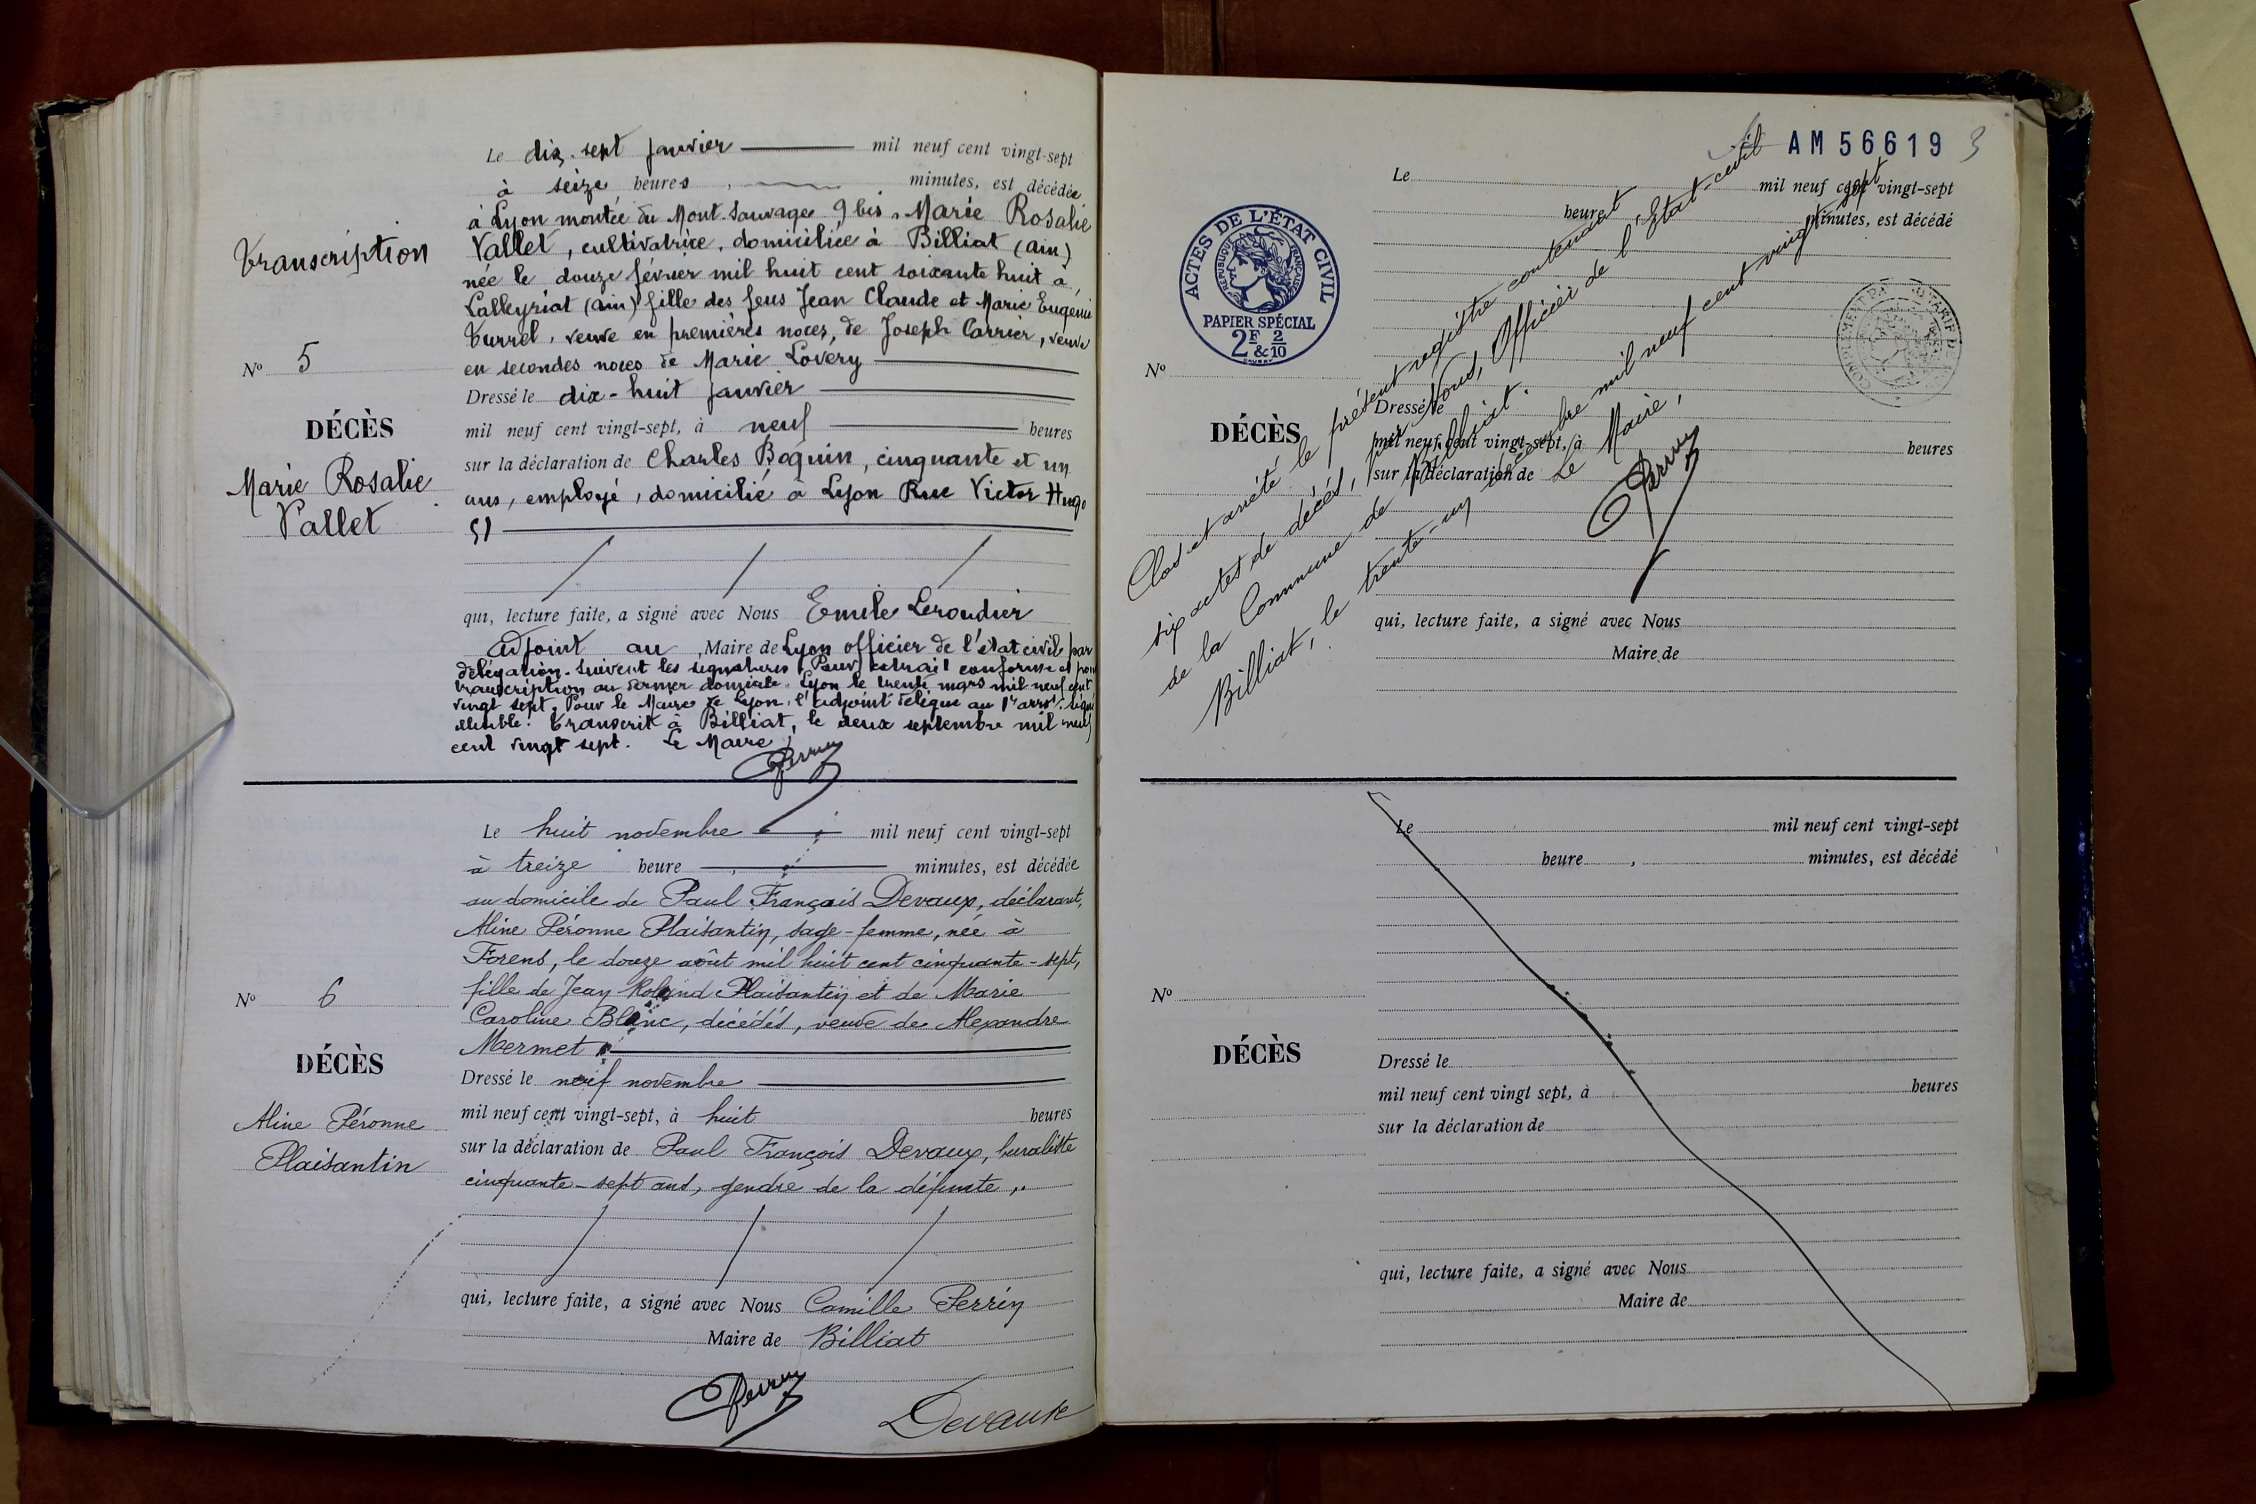 Le dix-sept janvier mil neuf cent vingt-sept
à seize heures, minutes, est décédée
à Lyon montée du Mont-Sauvage 9 bis, Marie Rosalie
Vallet, cultivatrice, domiciliée à Billiat (ain)
née le douze février mil huit cent soixante huit à
Lalleyriat (ain) fille des feus Jean Claude et Marie Eugenie
Turrel, veuve en premières noces, de Joseph Carrier, veuve
en secondes noces de Marie Lovery
Transcription
No 5
DÉCÈS
Marie Rosalie
Vallet
Dressé le dix-huit janvier
mil neuf cent vingt-sept, à neuf heures
sur la déclaration de Charles Boquin, cinquante et un
ans, employé, domicilié à Lyon Rue Victor Hugo
51
qui, lecture faite, a signé avec Nous Emile Leroudier
adjoint au Maire de Lyon officier de l'état civil par
délégation. Suivent les signatures. Pour extrait conforme et pour
transcription au dernier domicile. Lyon le trente mars mil neuf cent
vingt sept. Pour le Maire de Lyon, l'adjoint délégué au 1er arrt. signé
illisible. Transcrit à Billiat, le deux septembre mil neuf
cent vingt sept. Le Maire,
Perrin
Le huit novembre mil neuf cent vingt-sept
à treize heure, minutes, est décédée
au domicile de Paul François Devaux, déclarant,
Aline Péronne Plaisantin, sage-femme, née à
Forens, le douze août mil huit cent cinquante-sept,
fille de Jean Roland Plaisantin et de Marie
Caroline Blanc, décédés, veuve de Alexandre
Mermet
No 6
DÉCÈS
Aline Péronne
Plaisantin
Dressé le neuf novembre
mil neuf cent vingt-sept, à huit heures
sur la déclaration de Paul François Devaux, buraliste
cinquante-sept ans, gendre de la défunte
qui, lecture faite, a signé avec Nous Camille Perrin
Maire de Billiat
Perrin
Devaux
AM 56619 3
ACTES DE L'ÉTAT CIVIL
RÉPUBLIQUE FRANÇAISE
PAPIER SPÉCIAL
2F & 2/10
Le mil neuf cent vingt-sept
heure, minutes, est décédé
No
DÉCÈS
Dressé le
mil neuf cent vingt-sept, à heures
sur la déclaration de
qui, lecture faite, a signé avec Nous
Maire de
Clos et arrêté le présent registre contenant
six actes de décès, par Nous, Officier de l'Etat-civil
de la Commune de Billiat.
Billiat, le trente-un décembre mil neuf cent vingt sept
Le Maire,
Perrin
Le mil neuf cent vingt-sept
heure, minutes, est décédé
No
DÉCÈS
Dressé le
mil neuf cent vingt sept, à heures
sur la déclaration de
qui, lecture faite, a signé avec Nous
Maire de